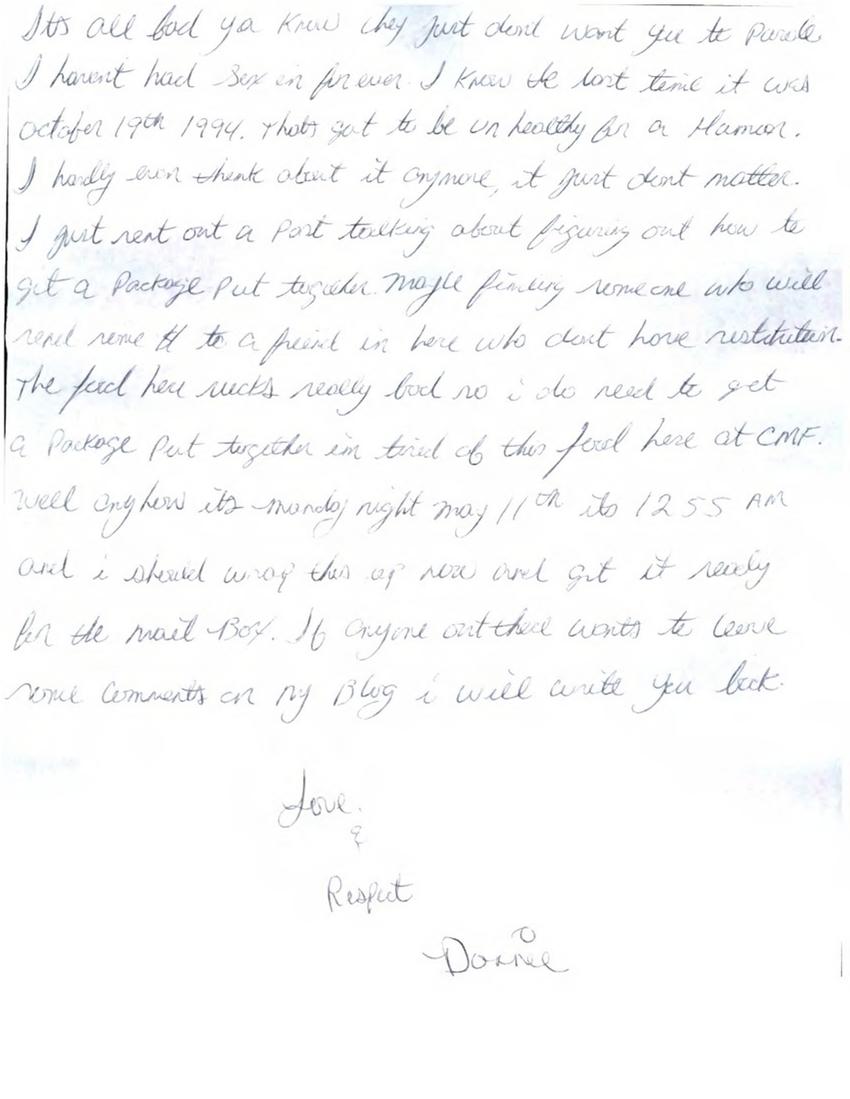 Its all bad ya know they just dont want you to Parole
I havent had Sex in forever. I know the last time it was
october 19th 1994. thats got to be un healthy for a Human.
I hardly even think about it anymore, it just dont matter.
I just sent out a Post talking about figuring out how to
get a Package Put together. Maybe finding someone who will
send some $ to a friend in here who dont have restitution.
The food here sucks really bad so i do need to get
a Package Put together im tired of this food here at CMF.
well anyhow its monday night may 11th its 12 55 AM
and i should wrap this up now and get it ready
for the mail Box. If anyone out there wants to leave
some Comments on my Blog i will write you back.
Love.
&
Respect
Donnie